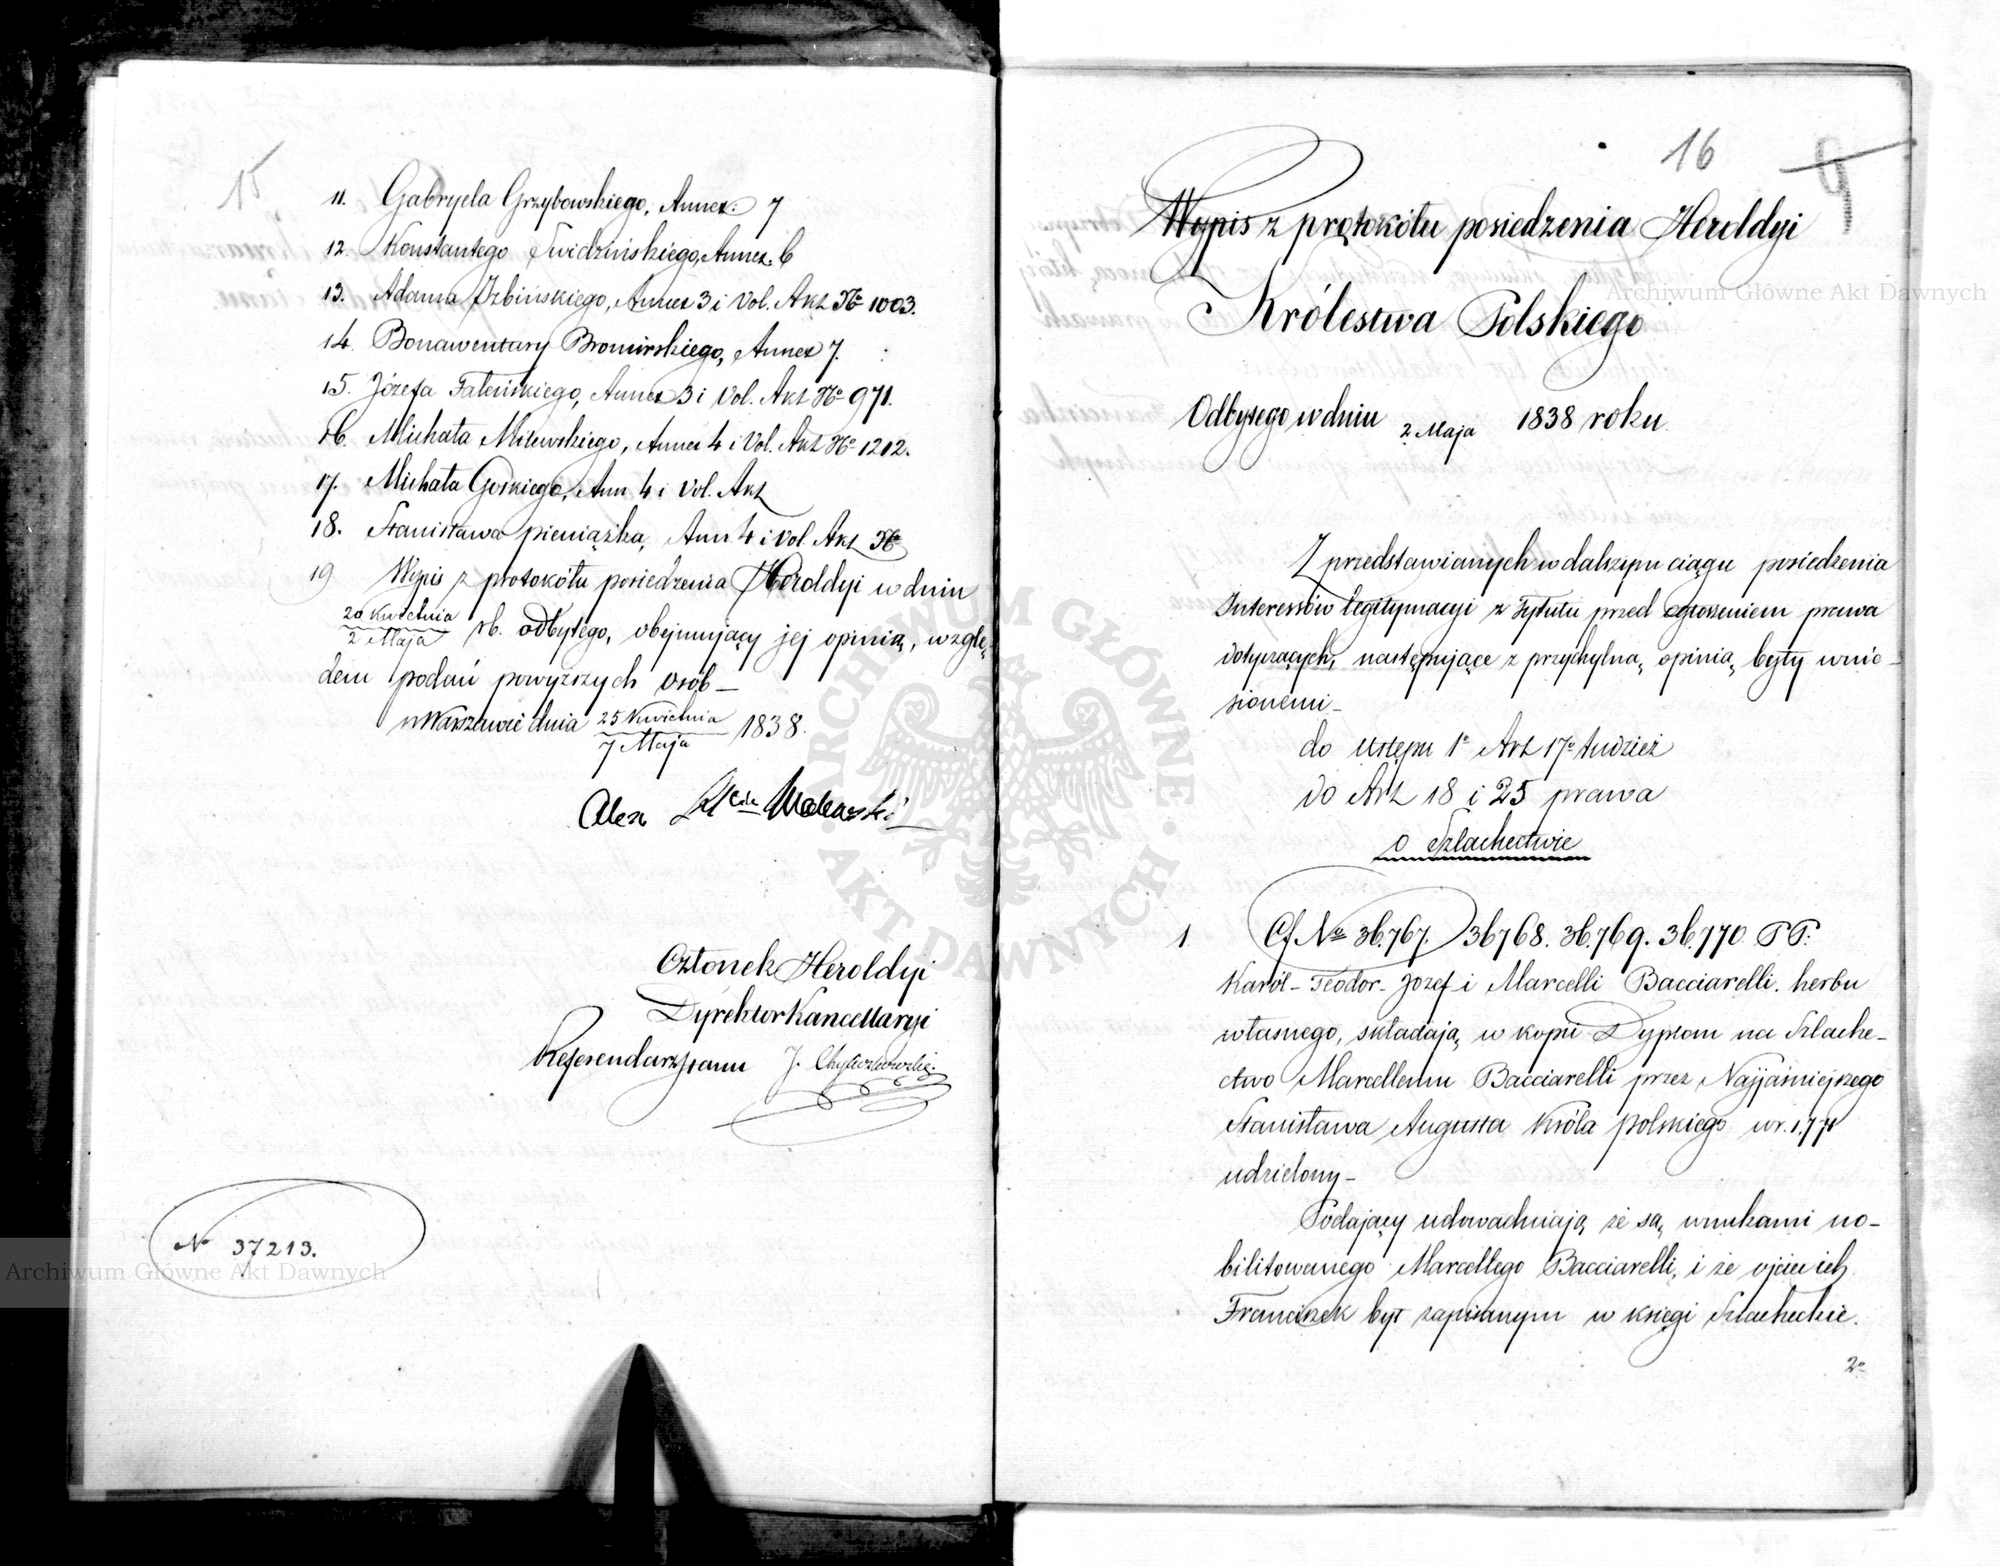 15
11. Gabryela Grzybowskiego, Annex: 7
12. Konstantego Swidzińskiego, Annex. 6
13. Adama Izbińskiego, Annex 3 i Vol. Akt No 1003.
14. Bonawentury Bromirskiego, Annex 7.
15. Józefa Faleńskiego, Annex 3 i Vol. Akt No 971.
16. Michała Milewskiego, Annex 4 i Vol. Akt No 1212.
17. Michała Gorskiego, Ann 4 i Vol. Akt
18. Stanisława Pieniążka, Ann. 4 i Vol Akt No
19 Wypis z protokółu posiedzenia Heroldyi w dniu
20 Kwietnia
2 Maja rb. odbytego, obejmujący jej opinią, wzglę-
dem podań powyższych osób —
w Warszawie dnia 25 Kwietnia
7 Maja 1838.
Alex
Członek Heroldyi
Dyrektor Kancellaryi
Referendarz Stanu J.
No 37213.
16
9
Wypis z protokółu posiedzenia Heroldyi
Królestwa Polskiego
Odbytego w dniu 2 Maja 1838 roku.
Z przedstawianych w dalszym ciągu posiedzenia
Interessów legitymacyi z tytułu przed ogłoszeniem prawa
dotyczących, następujące z przychylną opinią były wnie-
sionemi —
do ustępu 1o Art 17o tudzież
do Art 18 i 25 prawa
o Szlachectwie
1. Cf No 36.767. 36768. 36.769. 36.770 PP:
Karól - Teodor - Jozef i Marcelli Bacciarelli. herbu
własnego, składają w kopii Dyplom na Szlache-
ctwo Marcellemu Bacciarelli przez Najjaśniejszego
Stanisława Augusta Króla polskiego w r. 1771
udzielony —
Podający udowadniają że są wnukami no-
bilitowanego Marcellego Bacciarelli, i że ojciec ich
Franciszek był zapisanym w księgi Szlacheckie.
2o
Archiwum Główne Akt Dawnych
Archiwum Główne Akt Dawnych
ARCHIWUM GŁÓWNE
AKT DAWNYCH